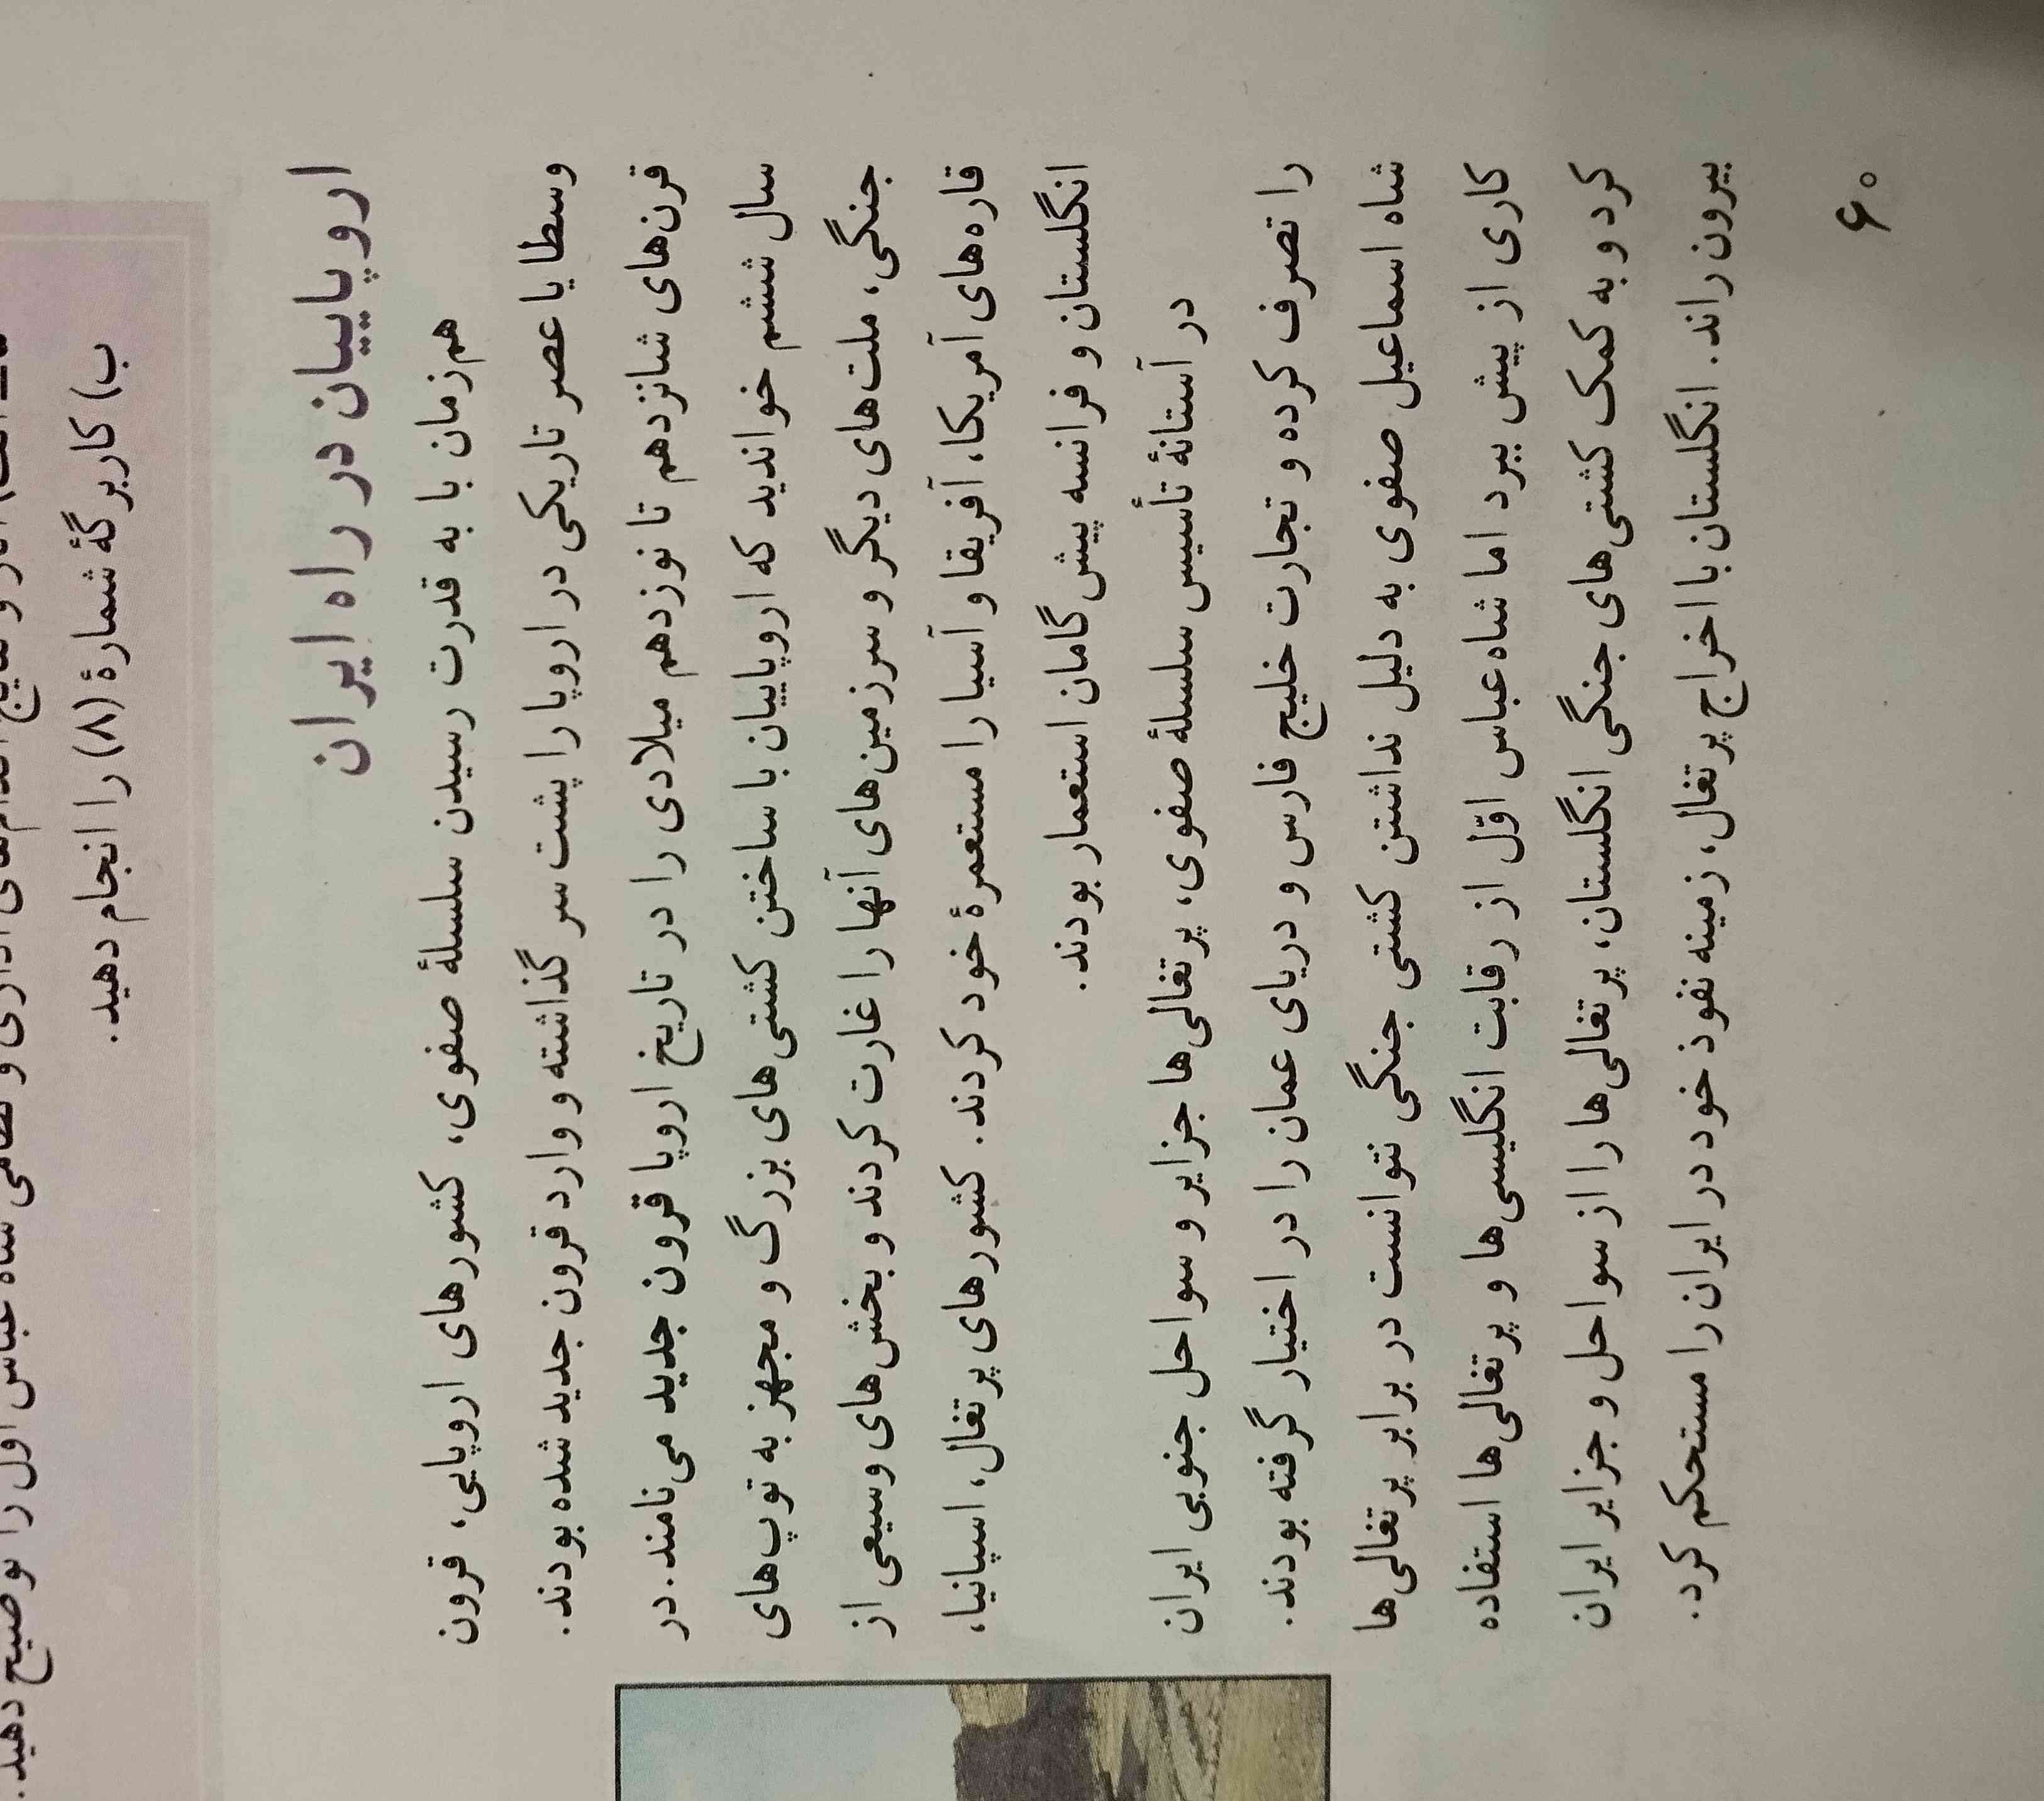 شاه عباس اول را توضیح دهید.
ب) کاربرگهٔ شمارهٔ (۸) را انجام دهید.
اروپاییان در راه ایران
هم‌زمان با به قدرت رسیدن سلسلهٔ صفوی، کشورهای اروپایی، قرون
وسطا یا عصر تاریکی در اروپا را پشت سر گذاشته و وارد قرون جدید شده بودند.
قرن‌های شانزدهم تا نوزدهم میلادی را در تاریخ اروپا قرون جدید می‌نامند. در
سال ششم خواندید که اروپاییان با ساختن کشتی‌های بزرگ و مجهز به توپ‌های
جنگی، ملت‌های دیگر و سرزمین‌های آنها را غارت کردند و بخش‌های وسیعی از
قاره‌های آمریکا، آفریقا و آسیا را مستعمرهٔ خود کردند. کشورهای پرتغال، اسپانیا،
انگلستان و فرانسه پیش گامان استعمار بودند.
در آستانهٔ تأسیس سلسلهٔ صفوی، پرتغالی‌ها جزایر و سواحل جنوبی ایران
را تصرف کرده و تجارت خلیج فارس و دریای عمان را در اختیار گرفته بودند.
شاه اسماعیل صفوی به دلیل نداشتن کشتی جنگی نتوانست در برابر پرتغالی‌ها
کاری از پیش ببرد اما شاه عباس اوّل از رقابت انگلیسی‌ها و پرتغالی‌ها استفاده
کرد و به کمک کشتی‌های جنگی انگلستان، پرتغالی‌ها را از سواحل و جزایر ایران
بیرون راند. انگلستان با اخراج پرتغال، زمینه نفوذ خود در ایران را مستحکم کرد.
۶۰